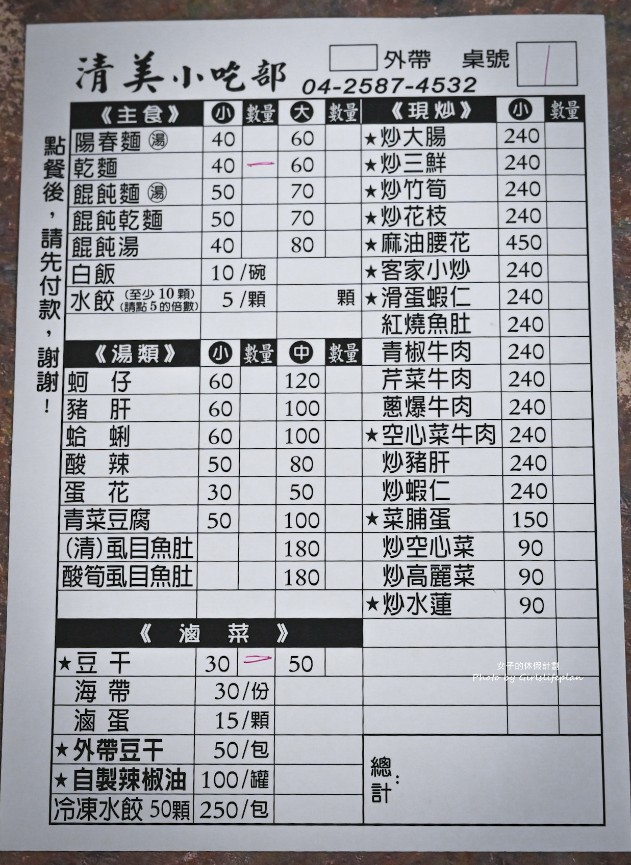 清美小吃部 外帶 桌號 1
04-2587-4532
點餐後，請先付款，謝謝！
《主食》 小 數量 大 數量
陽春麵 湯 40 60
乾麵 40 一 60
餛飩麵 湯 50 70
餛飩乾麵 50 70
餛飩湯 40 80
白飯 10/碗
水餃 (至少10顆) (請點5的倍數) 5/顆 顆
《湯類》 小 數量 中 數量
蚵仔 60 120
豬肝 60 100
蛤蜊 60 100
酸辣 50 80
蛋花 30 50
青菜豆腐 50 100
(清)虱目魚肚 180
酸筍虱目魚肚 180
《滷菜》
★豆干 30 一 50
海帶 30/份
滷蛋 15/顆
★外帶豆干 50/包
★自製辣椒油 100/罐
冷凍水餃50顆 250/包
《現炒》 小 數量
★炒大腸 240
★炒三鮮 240
★炒竹筍 240
★炒花枝 240
★麻油腰花 450
★客家小炒 240
★滑蛋蝦仁 240
紅燒魚肚 240
青椒牛肉 240
芹菜牛肉 240
蔥爆牛肉 240
★空心菜牛肉 240
炒豬肝 240
炒蝦仁 240
★菜脯蛋 150
炒空心菜 90
炒高麗菜 90
★炒水蓮 90
女子的休假計劃
Photo by Girlslifeplan
總計：